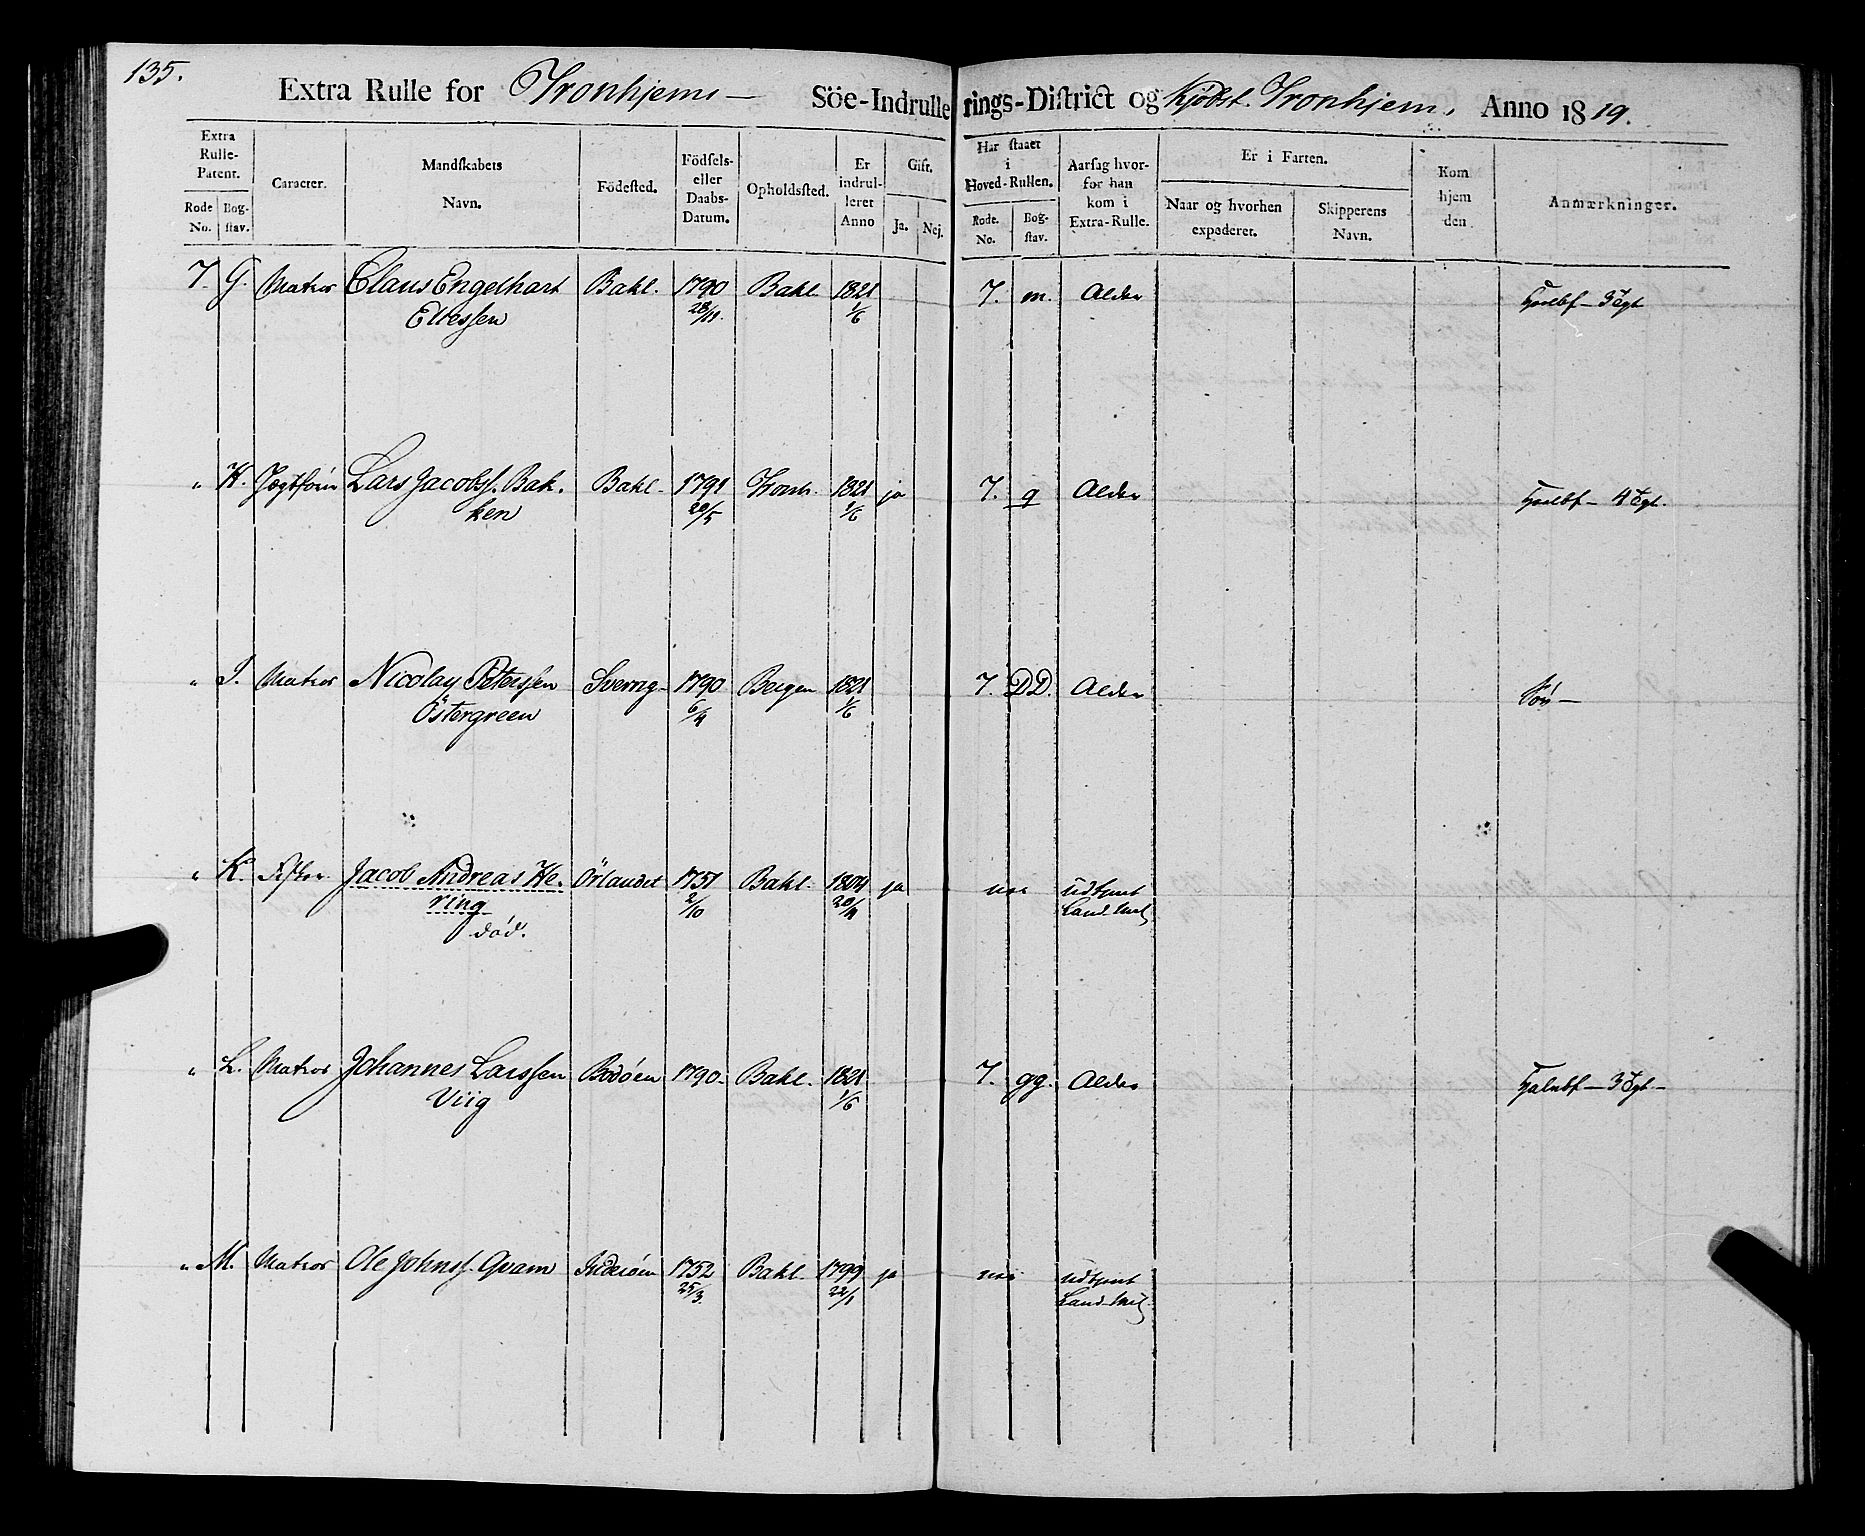 135.
Extra Rulle for Tronhjems — Söe-Indrullerings-District og Kjöbst. Tronhjem, Anno 1819.
Extra Rulle-Patent. Caracter. Mandskabets Navn. Födested. Födsels- eller Daabs-Datum. Opholdssted. Er indrulleret Anno Gift. Har staaet i Hoved-Rullen. Aarsag hvorfor han kom i Extra-Rulle. Er i Farten. Kom hjem den Anmærkninger.
Rode No. Bogstav. Ja. Nej. Rode. No. Bogstav. Naar og hvorhen expederet. Skipperens Navn.
7. G. Matros Claus Engelhart Bakl. 1790 Bakl. 1821 7. m. Alder 3 Tgt
Ellessen 28/11. 1/6
" H. Jægtskin Lars Jacobss. Bak- Bakl. 1791 Tronh. 1821 ja 7. q Alder 4 Tgt.
ken 20/5 1/6
" I. Matros Nicolay Peterssen Sverrig 1790 Bergen 1821 7. DD. Alder
Östergreen 6/4 1/6
" K. Jacob Andreas He- Örlandet 1751 Bakl. 1804 ja udtjent
ring 2/10 20/4 Land Mil
död.
" L. Matros Johannes Larssen Bodöen 1790. Bakl. 1821 7. gg. Alder 3 Tgt —
Viig 1/6
" M. Matros Ole Johnss. Qvam Inderöen 1752 Bakl. 1799 ja udtjent
25/3. 22/1 Land Mil.